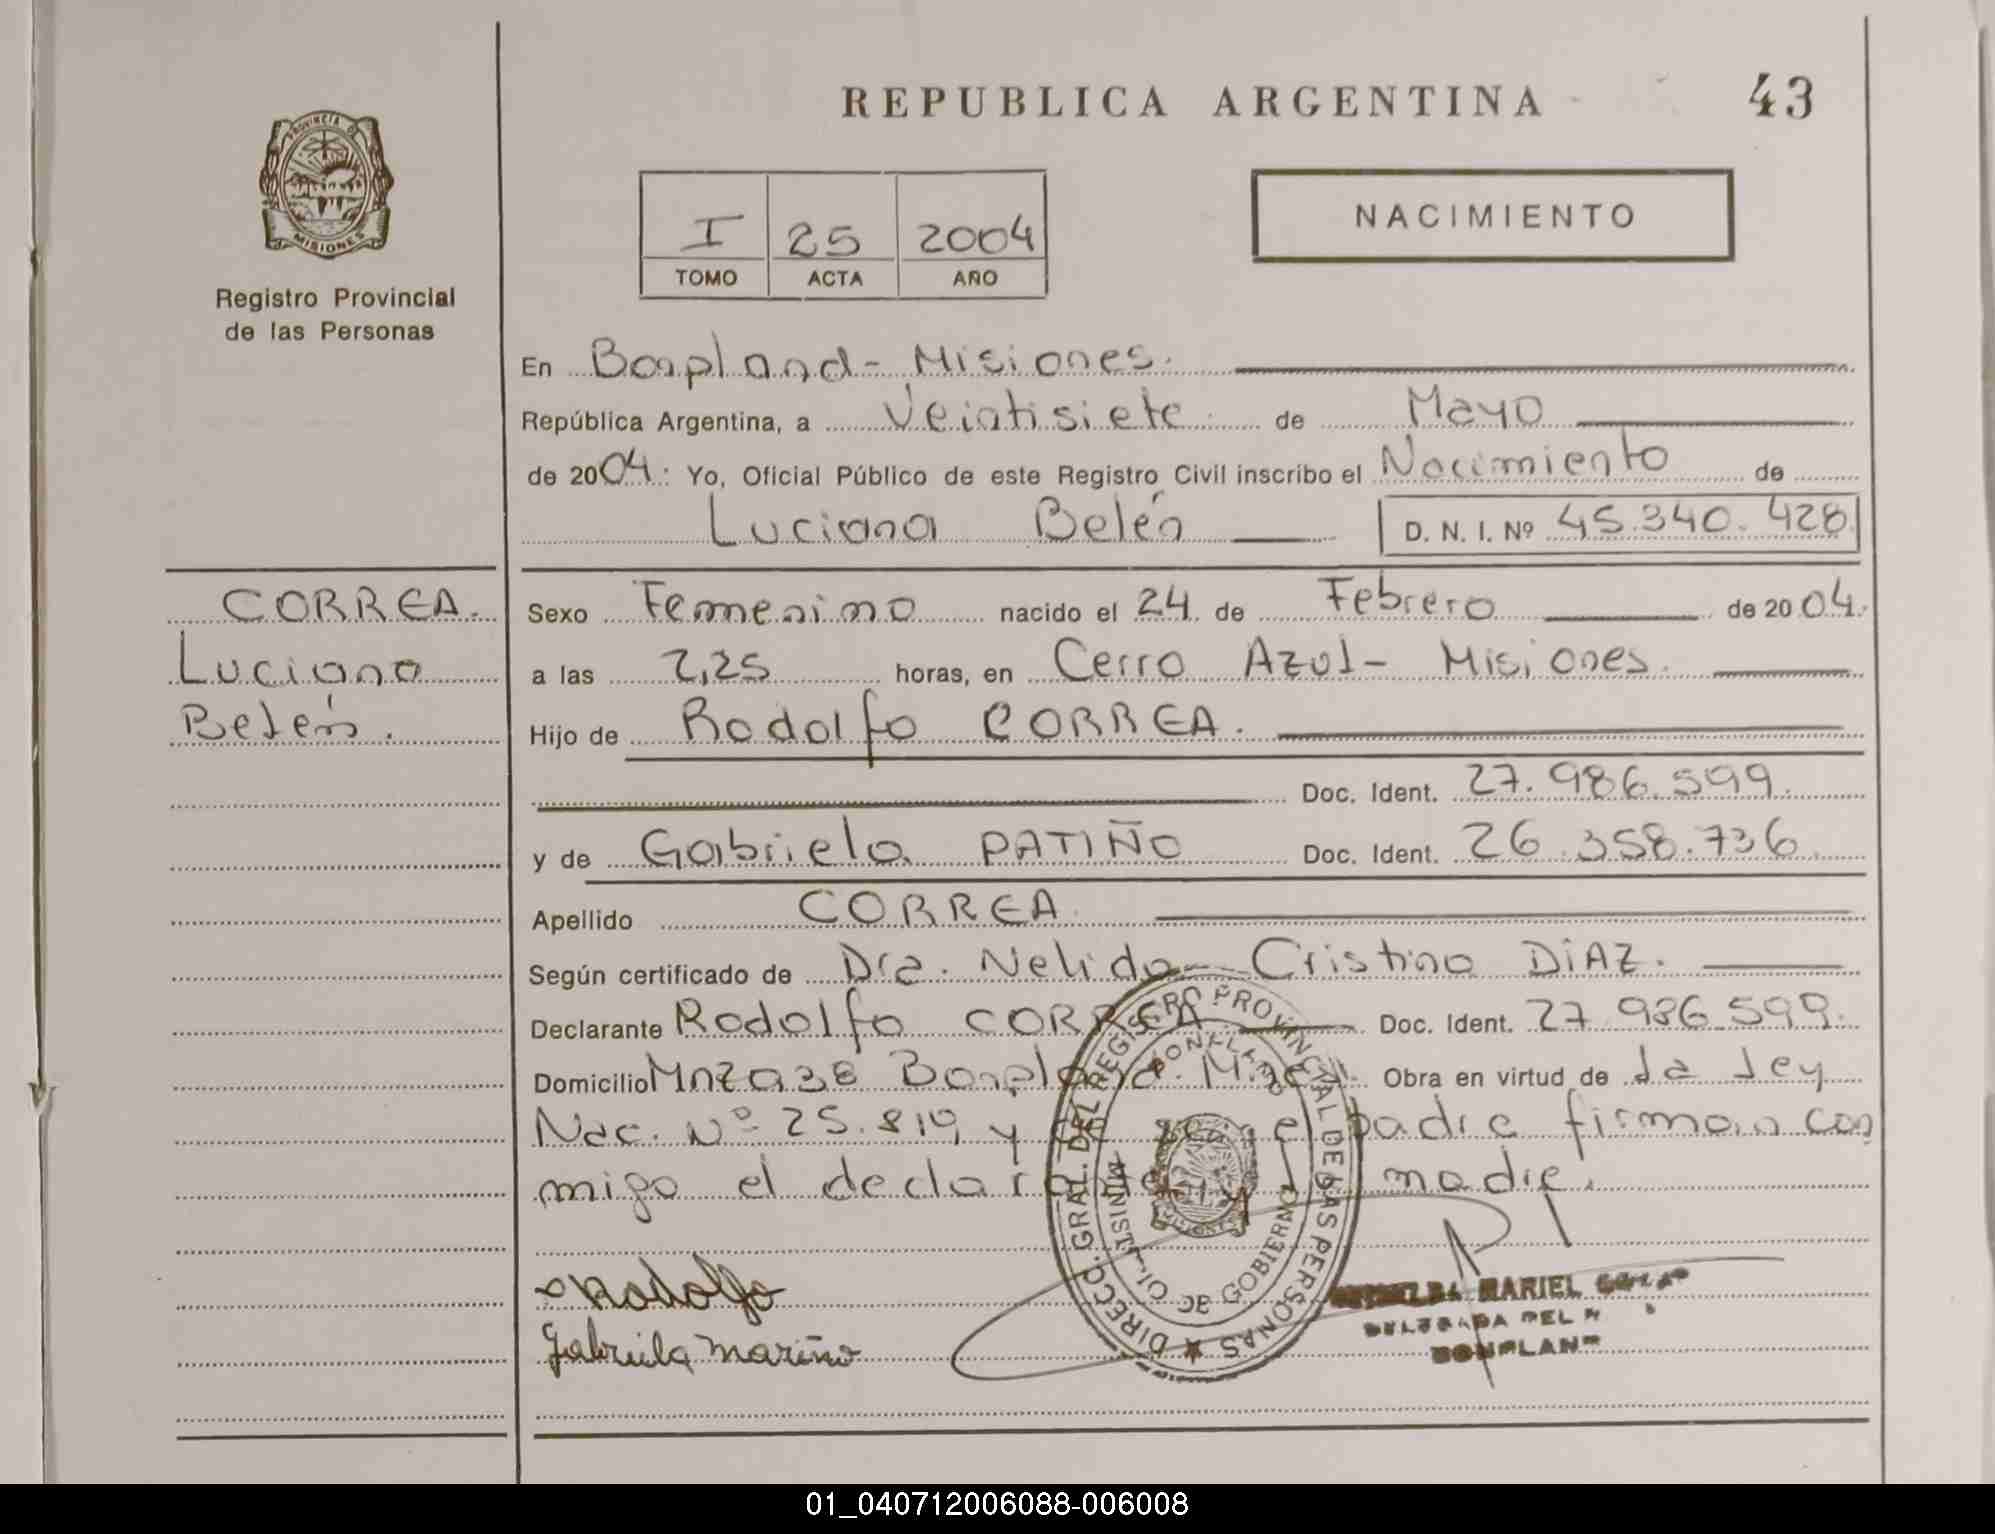 REPUBLICA ARGENTINA
43
PROVINCIA DE
MISIONES
Registro Provincial
de las Personas
I 25 2004
TOMO ACTA AÑO
NACIMIENTO
En Bonpland - Misiones.
República Argentina, a Veintisiete de Mayo
de 2004: Yo, Oficial Público de este Registro Civil inscribo el Nacimiento de
Luciana Belén D. N. I. Nº 45.340.428
CORREA.
Luciana
Belén.
Sexo Femenino nacido el 24 de Febrero de 2004.
a las 2,25 horas, en Cerro Azul - Misiones.
Hijo de Rodolfo CORREA.
Doc. Ident. 27.986.599
y de Gabriela PATIÑO Doc. Ident. 26.358.736
Apellido CORREA
Según certificado de Dra. Nelida Cristina DIAZ.
Declarante Rodolfo CORREA Doc. Ident. 27.986.599.
Domicilio Mnza 38 Bonpland. Mnes. Obra en virtud de la ley
Nac. Nº 25.819 y el padre firman con
migo el declarante y la madre.
DIRECC. GRAL. DEL REGISTRO PROVINCIAL DE LAS PERSONAS
BONPLAND
DE GOBIERNO
Rodolfo
Gabriela Mariño
MARIEL
BONPLAND
01_040712006088-006008